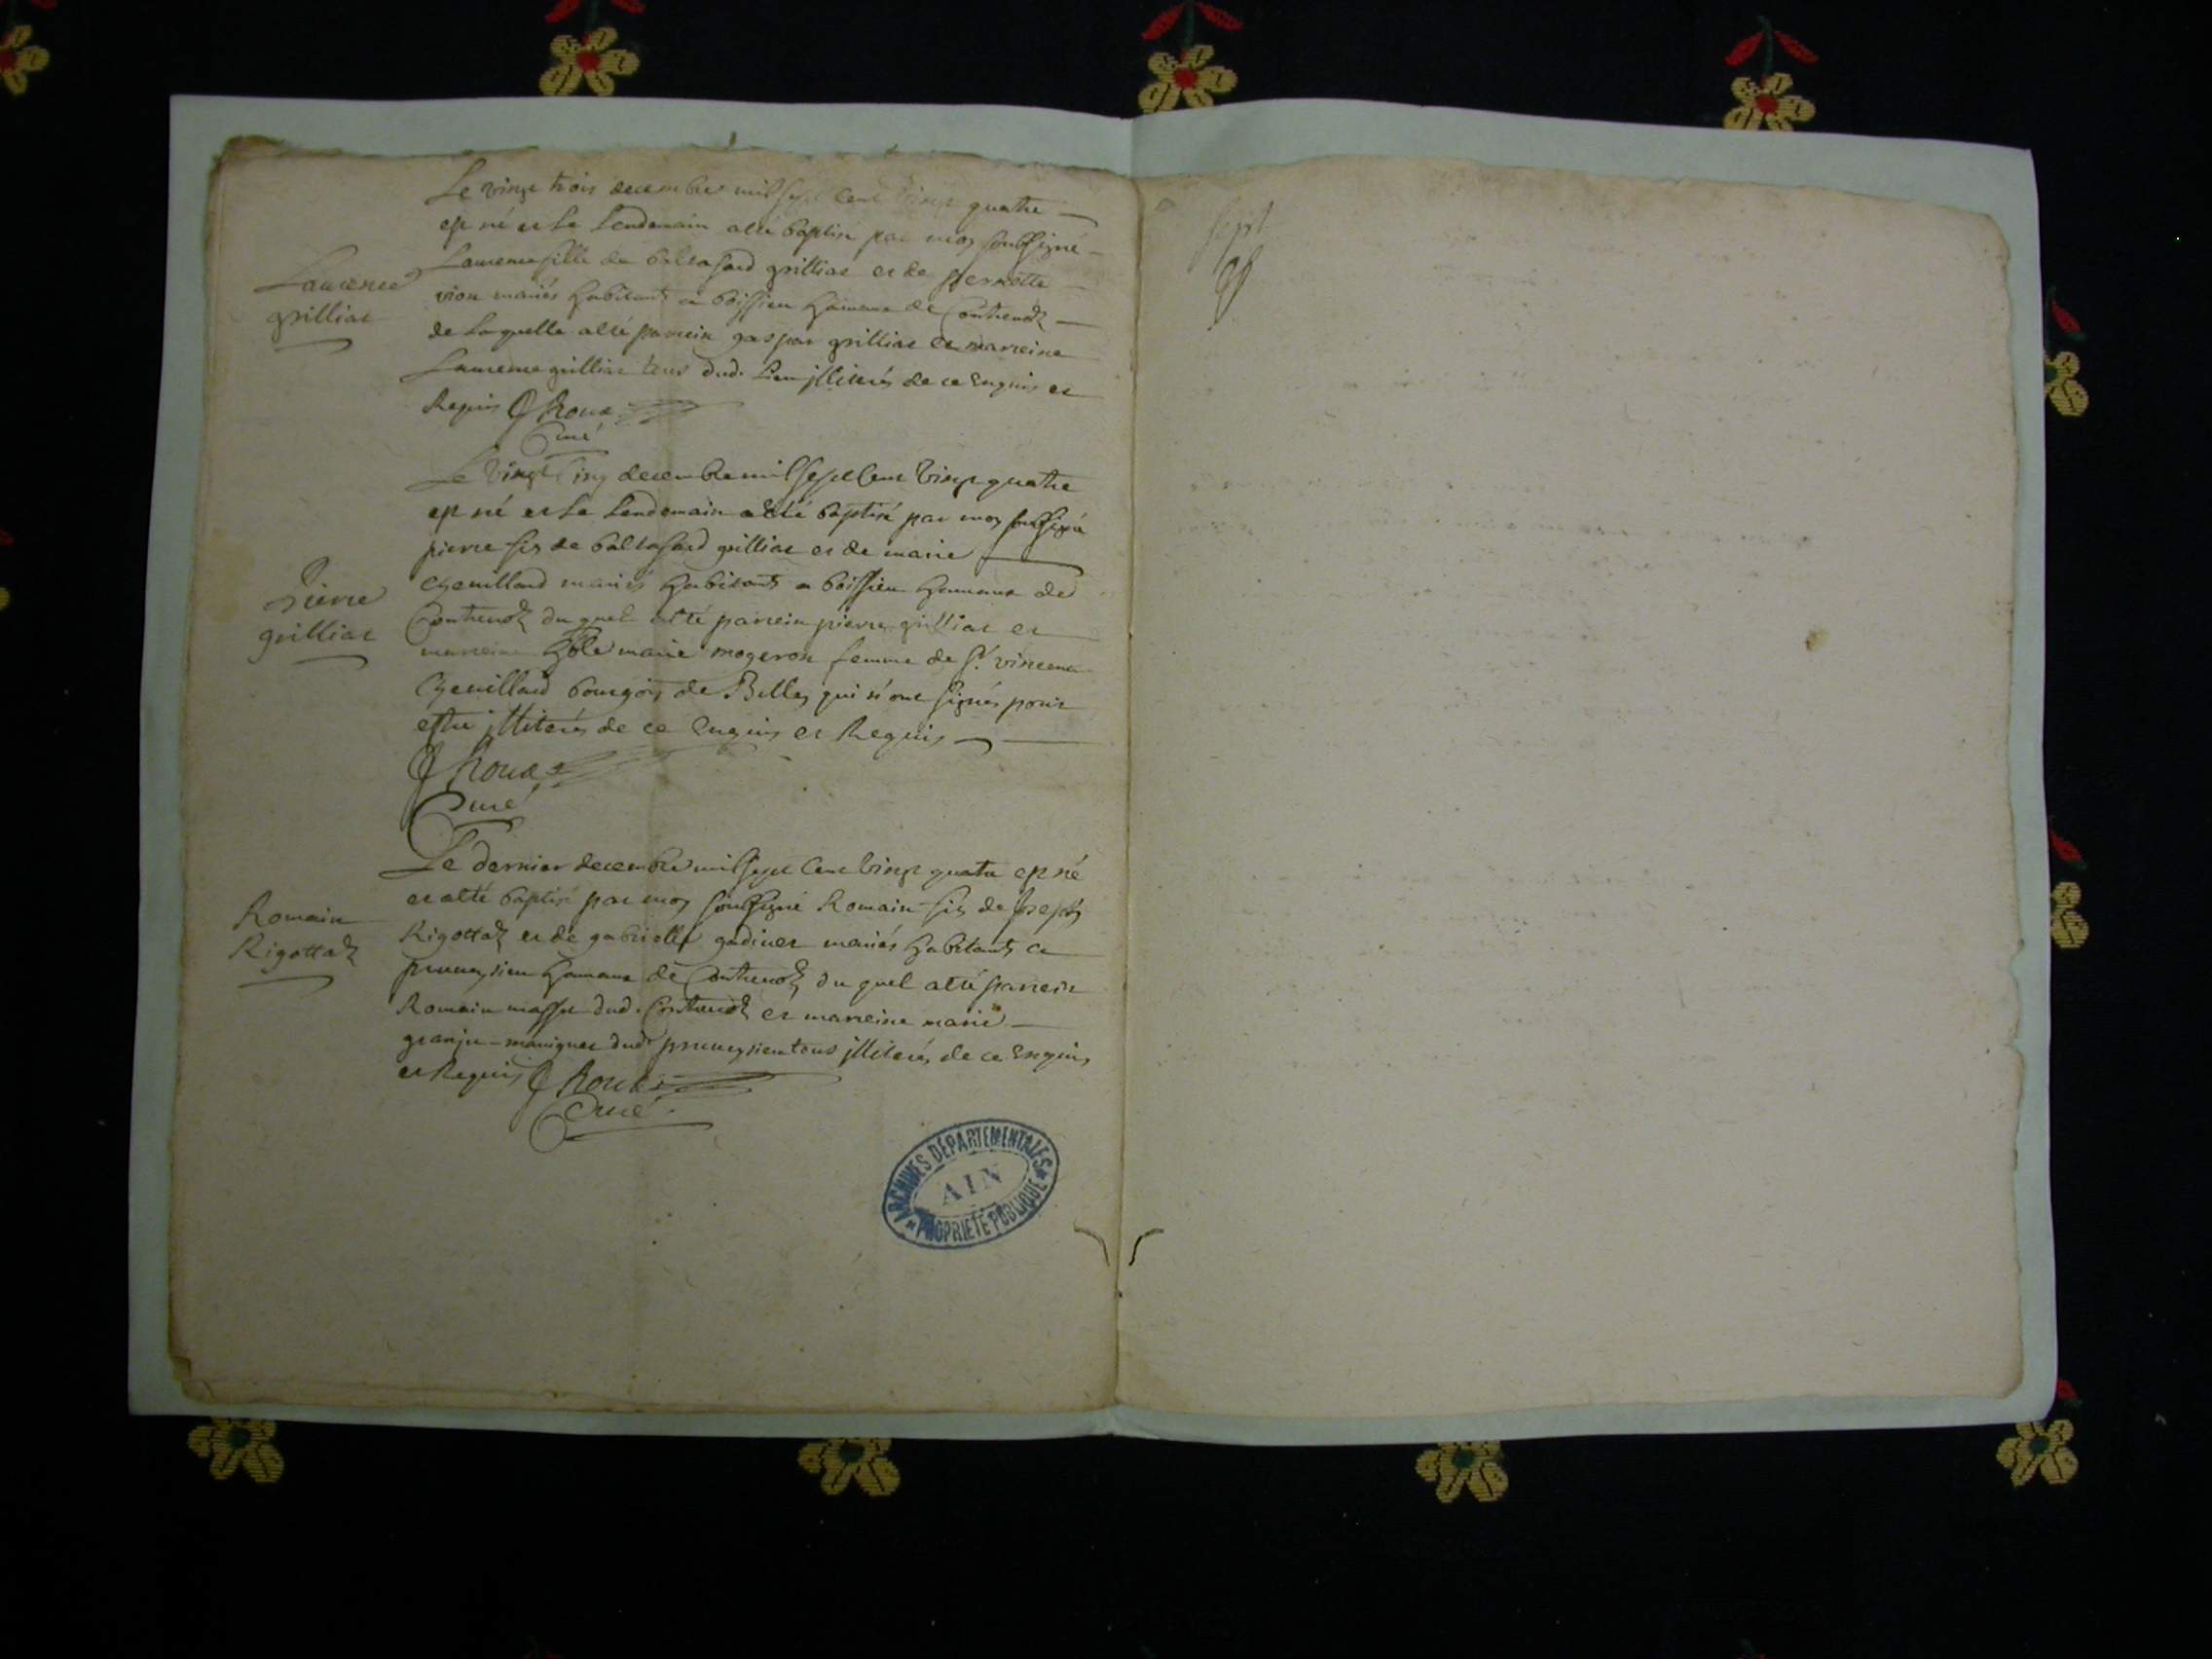 Laurence
grilliat
Le vingt trois decembre mil sept cent vingt quatre
est né et le lendemain a esté baptisé par moy soussigné
Laurence fille de baltasard grilliat et de pernette
vion mariés habitants a boissieu hameau de Contrevoz
de laquelle a esté parrein gaspar grilliat et marreine
Laurence grilliat tous dud. lieu illiterés de ce enquis et
Requis Roux
Curé
Pierre
grilliat
Le vingt cinq decembre mil sept cent vingt quatre
est né et le lendemain a esté baptisé par moy soussigné
pierre fis de baltasard grilliat et de marie
chevillard mariés habitants a boissieu hameau de
Contrevoz du quel a esté parrein pierre grilliat et
marreine hble marie mogeron femme de sr. vincent
chevillard bourgois de Belley qui n'ont signés pour
estre illiterés de ce enquis et Requis
Roux
Curé
Romain
Rigottaz
Le dernier decembre mil sept cent vingt quatre est né
et a esté baptisé par moy soussigné Romain fis de Joseph
Rigottaz et de gabrielle gadinet mariés habitants a
pruneysieu hameau de Contrevoz du quel a esté parrein
Romain masse dud. Contrevoz et marreine marie
granju maniguet dud. pruneysieu tous illiterés de ce enquis
et Requis Roux
Curé
ARCHIVES DÉPARTEMENTALES
AIN
PROPRIÉTÉ PUBLIQUE
sept